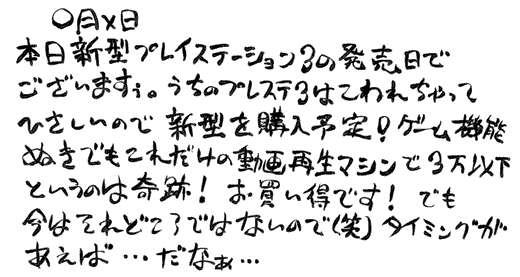 ○月×日
本日新型プレイステーション3の発売日で
ございますぅ。うちのプレステ3はこわれちゃって
ひさしいので 新型を購入予定！ゲーム機能
ぬきでもこれだけの動画再生マシンで3万以下
というのは奇跡！ お買い得です！ でも
今はそれどころではないので(笑)タイミングが
あえば…だなぁ…